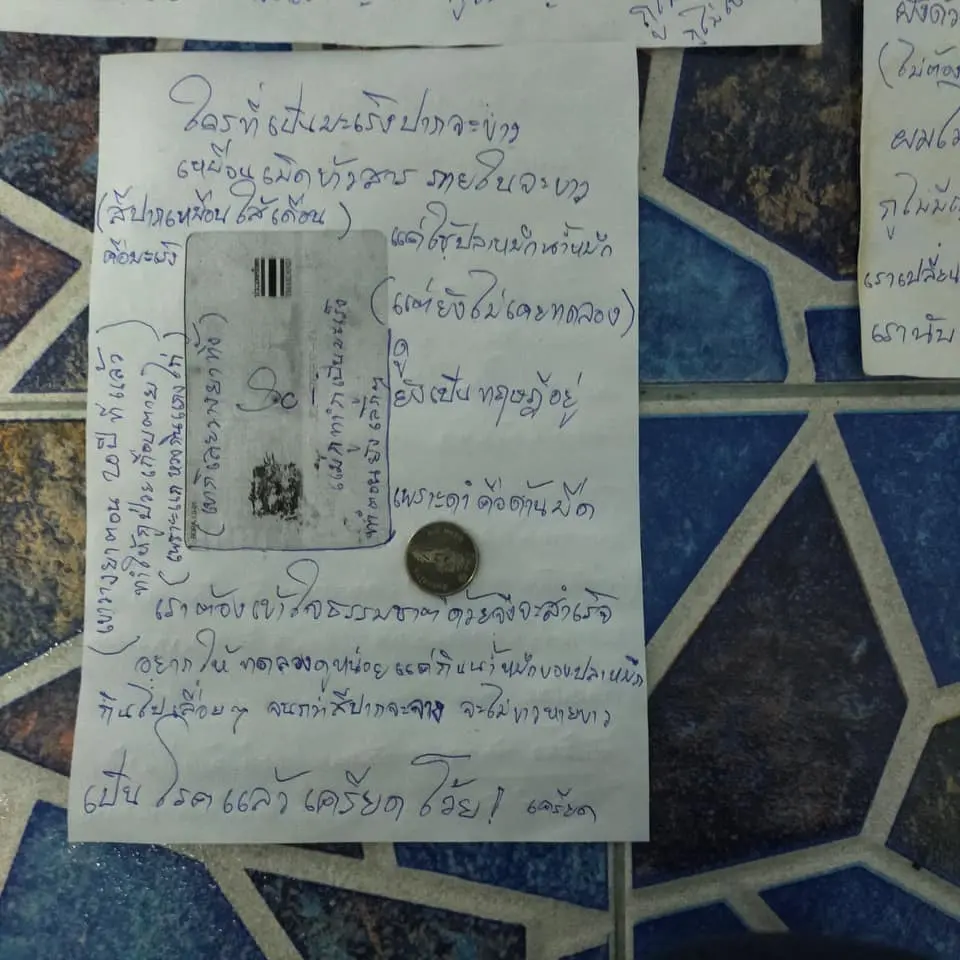 ใครที่เป็นมะเร็งปากจะขาว
เหมือนเม็ดข้าวสาร ภายในจะขาว
(สีปากเหมือนไส้เดือน)
คือมะเร็ง
แค่ใช้ปลาหมึกน้ำหมึก
(แต่ยังไม่เคยทดลอง)
ดู
ยังเป็นทฤษฎีอยู่
เพราะดำคือด้านมืด
(เขาวางยาตอน 20 ปี ที่แล้ว)
ทำให้กูป่วยเกือบตาย
(เขาก็เลยวางยาทิ้ง)
เราต้องเข้าใจธรรมชาติด้วยจึงจะสำเร็จ
อยากให้ทดลองดูหน่อยแค่กินน้ำหมึกของปลาหมึก
กินไปเรื่อยๆ จนกว่าสีปากจะจาง จะไม่ขาวหายขาว
เป็นโรคแล้วเครียดโว้ย! เครียด
ผมไม่
กูไม่มี
เราเปลี่ยน
เรานับ
(ไม่ต้อง